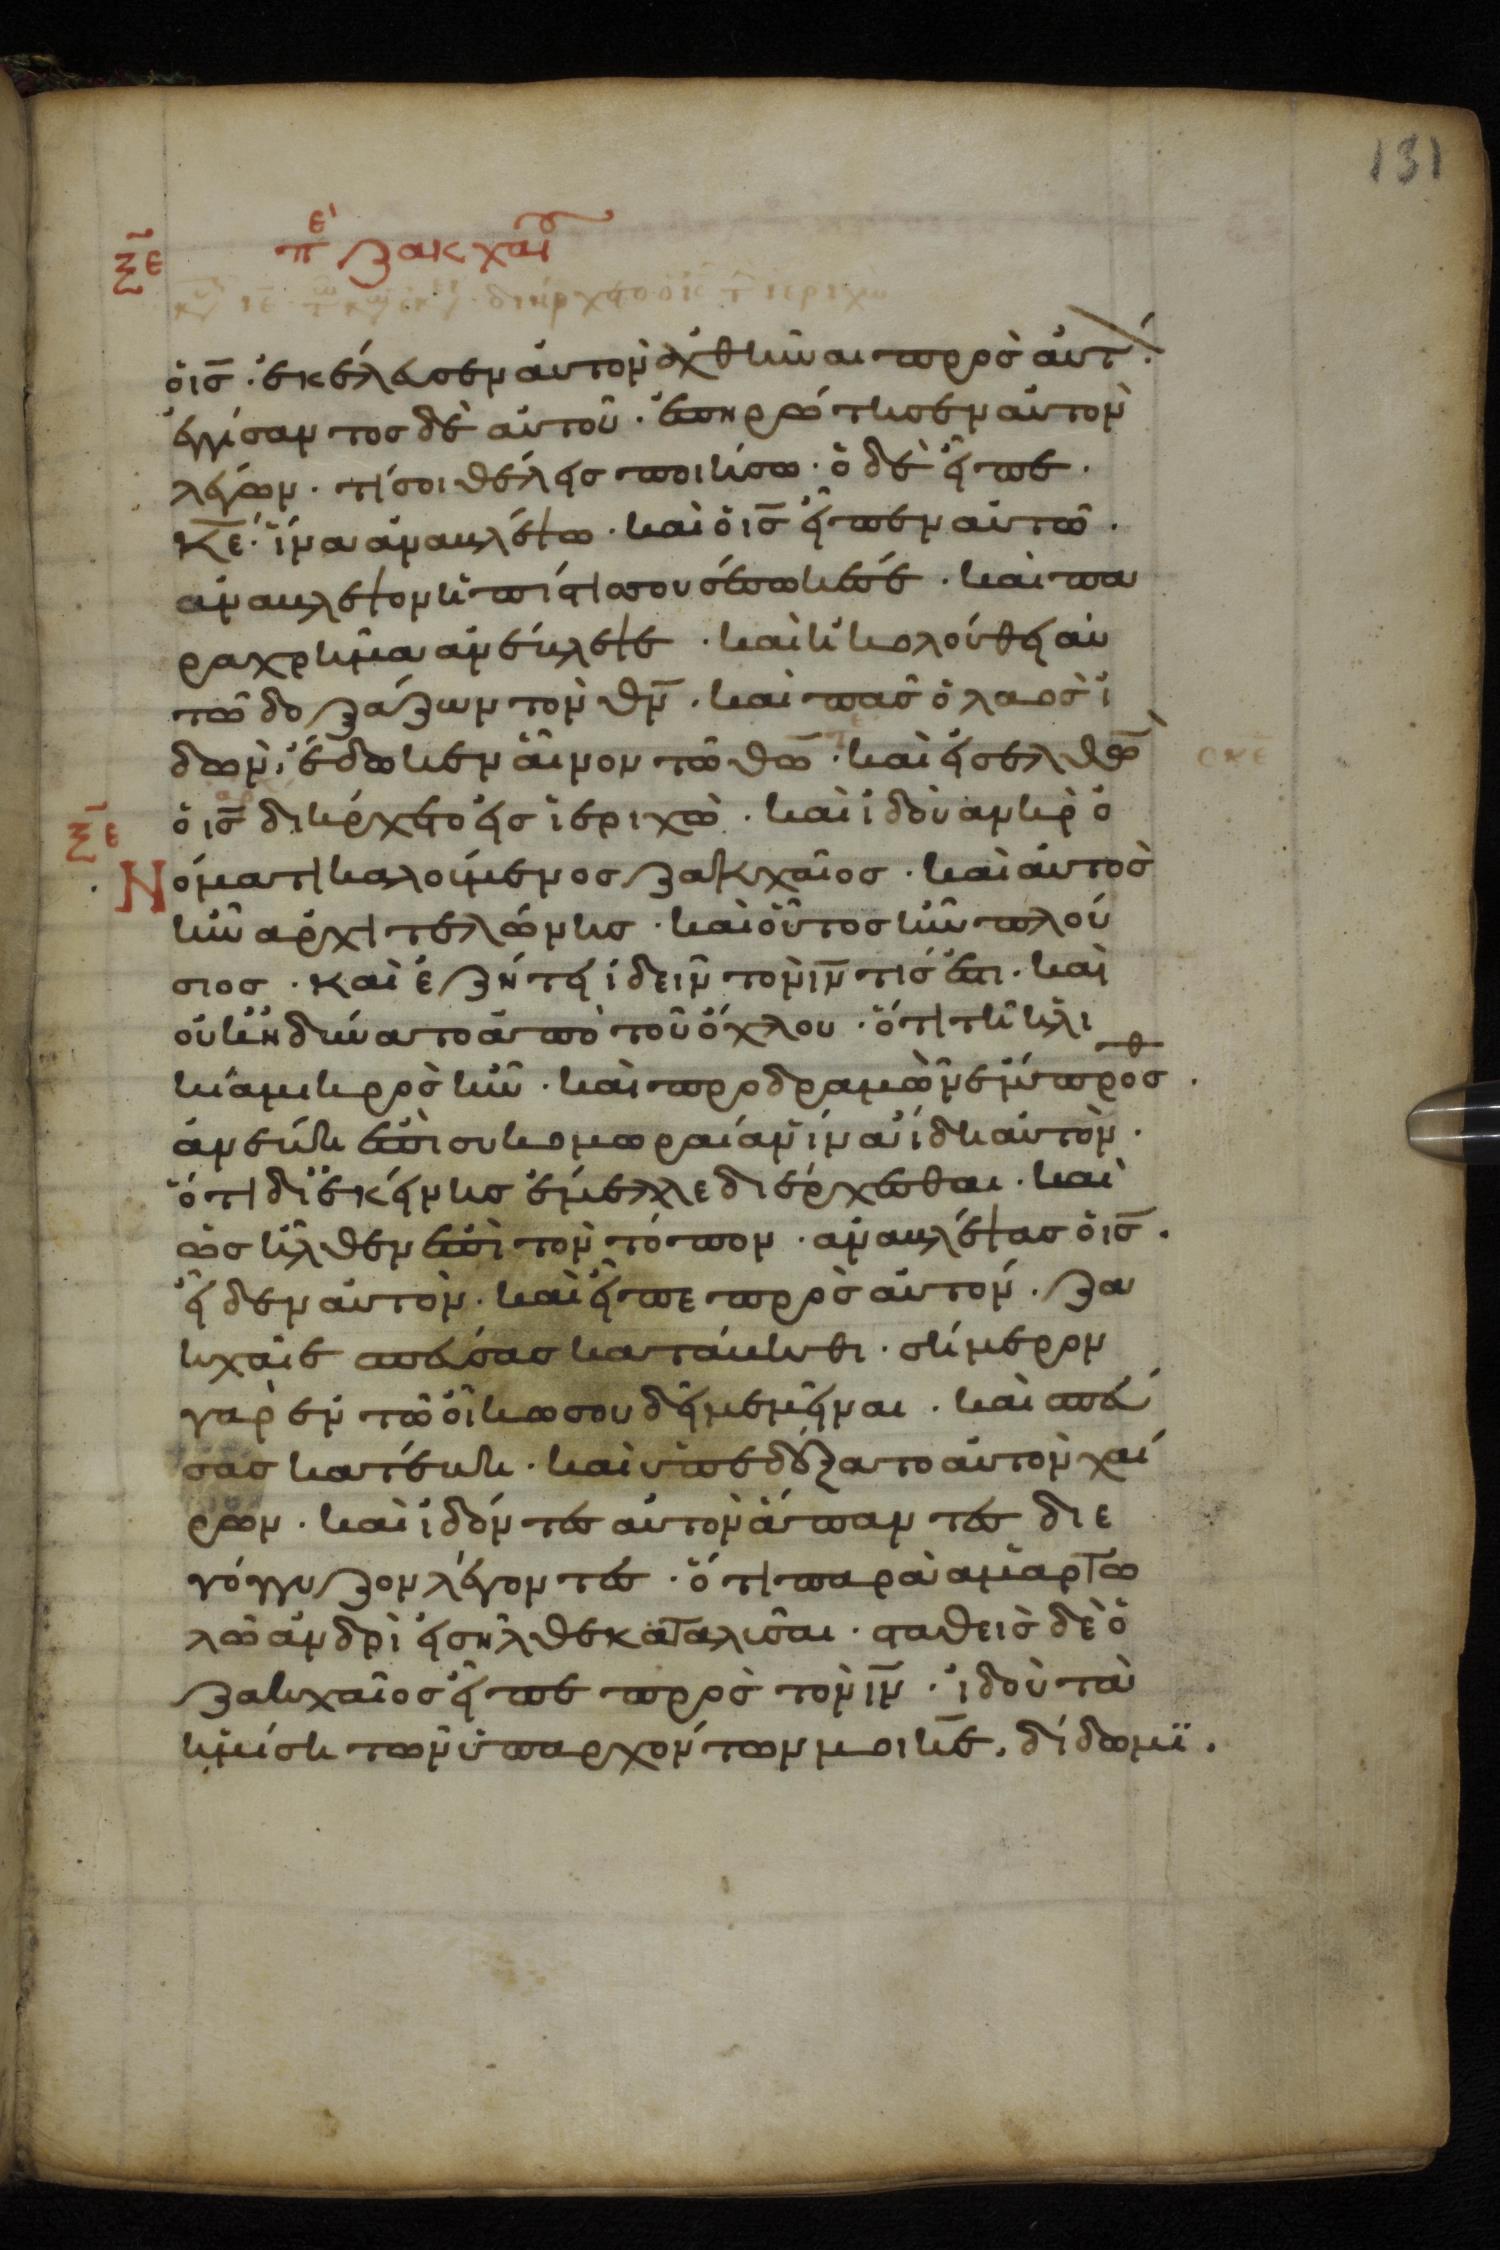 131
ξε περὶ ζακχαίου
διήρχετο ὁ ις τ ιεριχω
ὁ ις. ἐκέλευσεν αὐτὸν ἀχθῆναι πρὸς αὐτ.
ἐγγίσαντος δὲ αὐτοῦ. ἐπηρώτησεν αὐτὸν
λέγων. τί σοι θέλεις ποιήσω. ὁ δὲ εἶπε.
κε. ἵνα ἀναβλέψω. καὶ ὁ ις εἶπεν αὐτῶ.
ἀνάβλεψον ἡ πίστισ σου σέσωκέ σε. καὶ πα
ραχρῆμα ἀνέβλεψε. καὶ ἠκολούθει αὐ
τῶ δοξάζων τὸν θν. καὶ πᾶς ὁ λαὸς ἰ
δὼν, ἔδωκεν αἶνον τῶ θω. καὶ εἰσελθὼ
σκε
ὁ ις διήρχετο εἰς ἱεριχὼ. καὶ ἰδοὺ ἀνὴρ ὀ
ξε
Νόματι καλούμενος ζακχαῖος. καὶ αὐτὸς
ἦν ἀρχιτελώνης. καὶ οὗτος ἦν πλού
σιος. καὶ ἐζήτει ἰδεῖν τὸν ιν τίς ἐστι. καὶ
οὐκ ἠδύνατο ἀπὸ τοῦ ὄχλου. ὅτι τῆ ἡλι
κία μικρὸς ἦν. καὶ προδραμὼν ἔμπροσθ.
ἀνέβη ἐπὶ συκομωραίαν ἵνα ἴδη αὐτὸν.
ὅτι δι ἐκείνης ἔμελλε διέρχεσθαι. καὶ
ὡς ἦλθεν ἐπὶ τὸν τόπον. ἀναβλέψας ὁ ις.
εἶδεν αὐτὸν. καὶ εἶπε πρὸς αὐτόν. ζα
κχαῖε σπεύσας κατάβηθι. σήμερον
γὰρ ἐν τῶ οἴκω σου δεῖ με μεῖναι. καὶ σπεύ
σας κατέβη. καὶ ὑπεδέξατο αὐτὸν χαί
ρων. καὶ ἰδόντες αὐτὸν ἅπαντες διε
γόγγυζον λέγοντες. ὅτι παρὰ ἁμαρτω
λῶ ἀνδρὶ εἰσῆλθε καταλῦσαι. σταθεὶς δὲ ὁ
ζακχαῖος εἶπε πρὸς τὸν ιν. ἰδοὺ τὰ
ἡμίση τῶν ὑπαρχόντων μοι κε. δίδωμι.